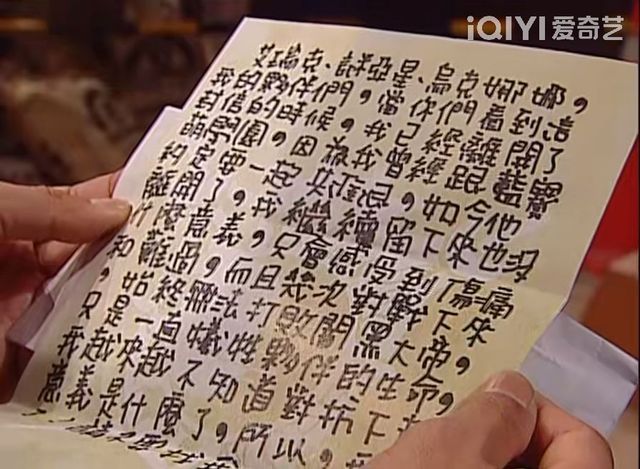 iQIYI 爱奇艺
艾瑞克、謎亞星、烏克娜娜,
我的夥伴們,當你們看到這
封信的時候,我已經離開了
萌學園,因為我曾經跟藍寶
約定要一起共進退,如今他
離開了,我繼續留下來也沒
什麼意義,只會感受到傷痛
和難過,而且幾次對戰下來
,始終無法打敗闇黑大帝,
只是一直犧牲夥伴的生命,
我越來越不知道對抗下
意義是什麼了,所以,